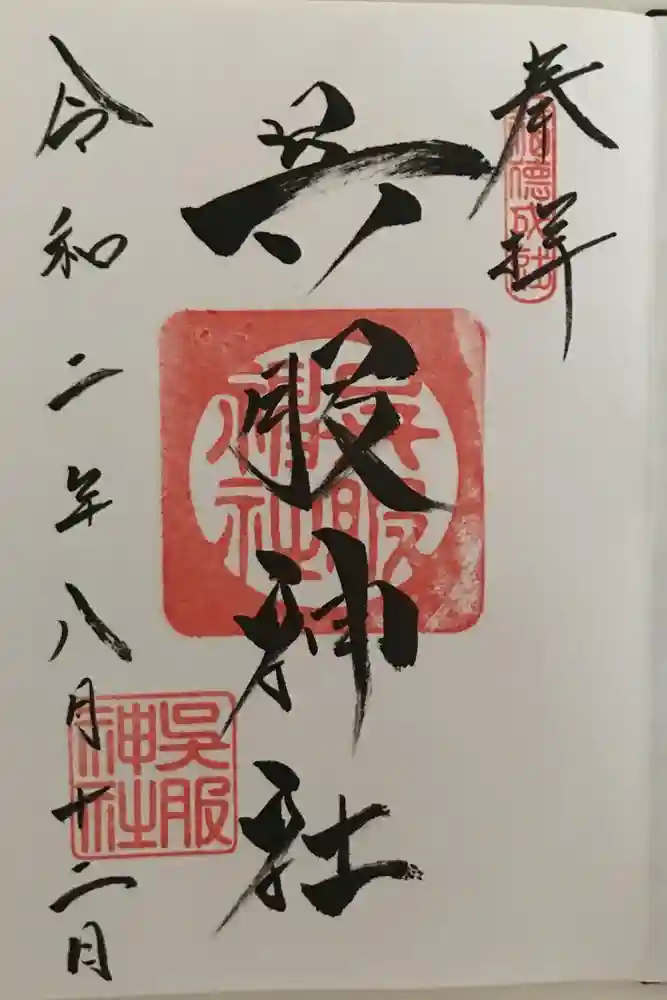 奉拝
福徳成社
呉服神社
呉服神社
呉服神社
令和二年八月十二日